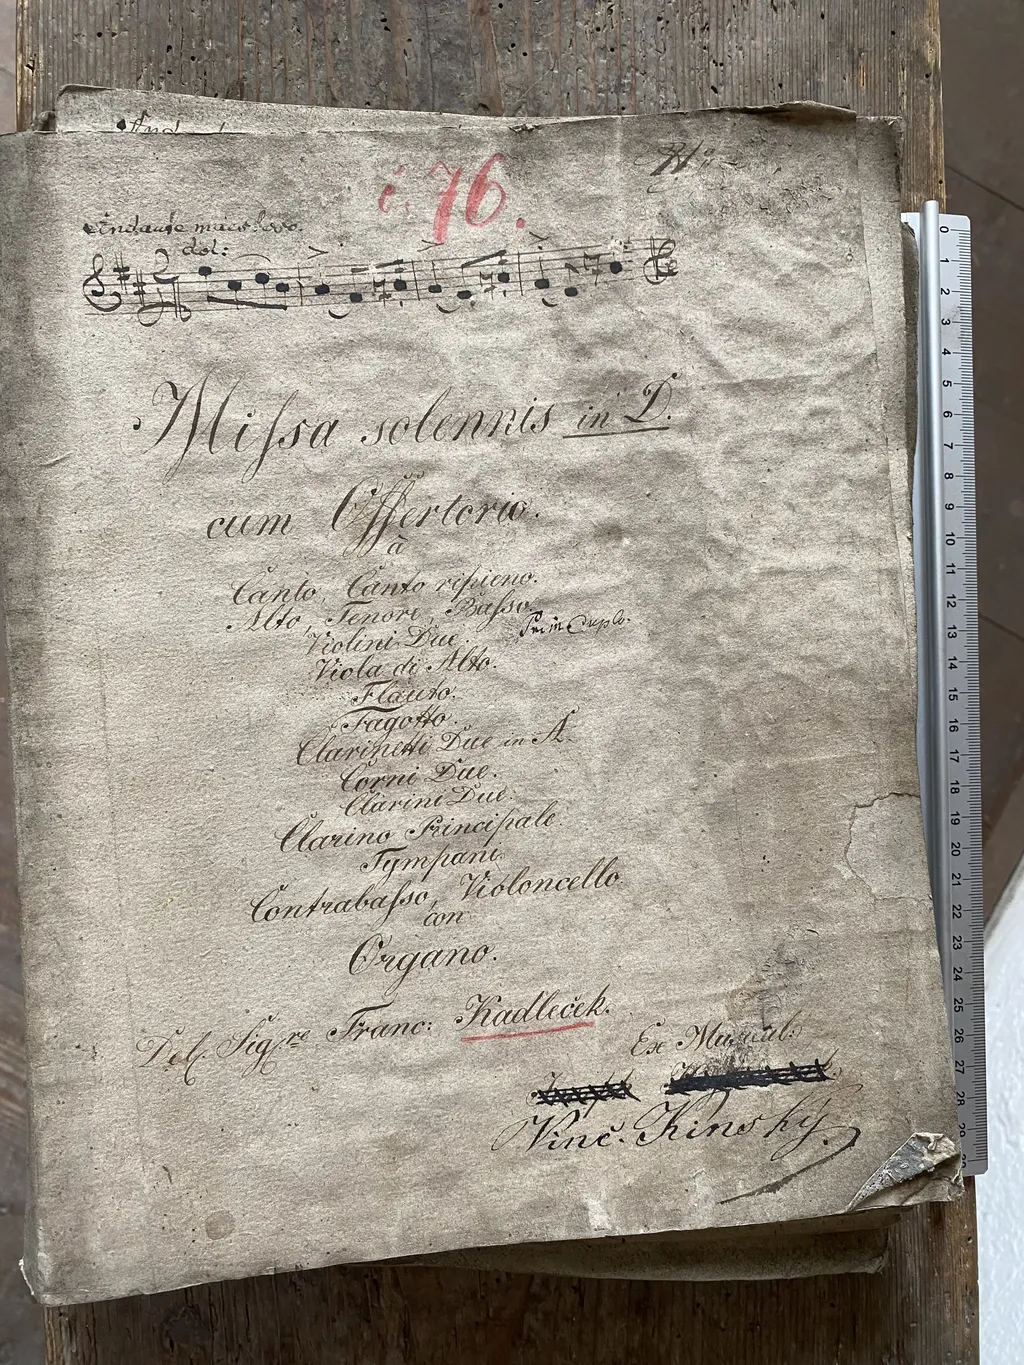 č. 76.
Andante maestoso.
dol:
Missa solennis in D.
cum Offertorio.
à
Canto, Canto ripieno.
Alto, Tenore, Basso.
Violini Due.
Viola di Alto.
Flauto.
Fagotto.
Clarinetti Due in A.
Corni Due.
Clarini Due.
Clarino Principale.
Tympani.
Contrabasso, Violoncello
con
Organo.
Del Sigre Franc: Kadleček.
Ex Musical:
Vinc. Kinský.
0
1
2
3
4
5
6
7
8
9
10
11
12
13
14
15
16
17
18
19
20
21
22
23
24
25
26
27
28
29